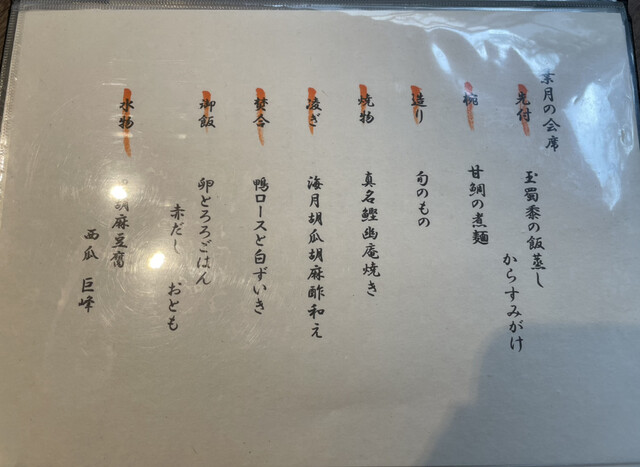 葉月の会席
先付
玉蜀黍の飯蒸し
からすみがけ
椀
甘鯛の煮麺
造り
旬のもの
焼物
真名鰹幽庵焼き
凌ぎ
海月胡瓜胡麻酢和え
焚合
鴨ロースと白ずいき
御飯
卵とろろごはん
赤だし おとも
水物
胡麻豆腐
西瓜 巨峰